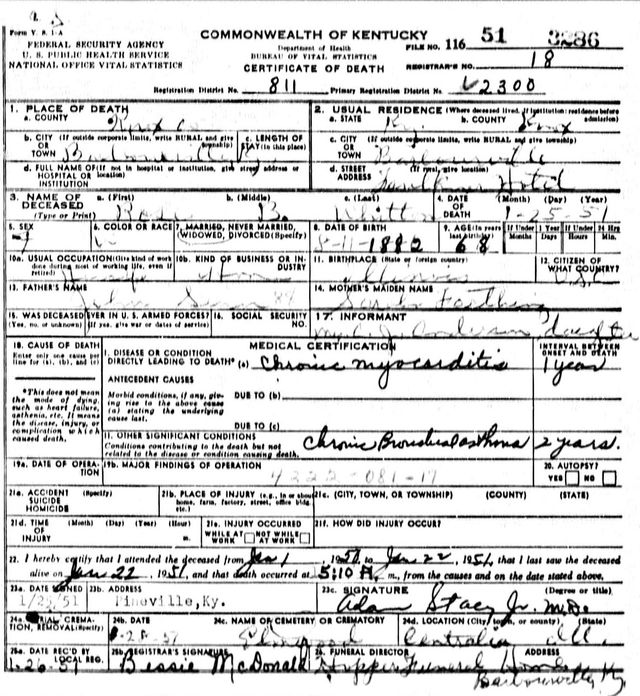 Form V. S. 1-A
FEDERAL SECURITY AGENCY
U. S. PUBLIC HEALTH SERVICE
NATIONAL OFFICE VITAL STATISTICS
COMMONWEALTH OF KENTUCKY
Department of Health
BUREAU OF VITAL STATISTICS
CERTIFICATE OF DEATH
FILE NO. 116 51 3286
REGISTRAR'S NO. 18
Registration District No. 811 Primary Registration District No. 2300
1. PLACE OF DEATH
a. COUNTY Knox Co
2. USUAL RESIDENCE (Where deceased lived. If institution: residence before admission)
a. STATE Ky. b. COUNTY Knox
b. CITY (If outside corporate limits, write RURAL and give township) OR TOWN Barbourville
c. LENGTH OF STAY (in this place)
c. CITY (If outside corporate limits, write RURAL and give township) OR TOWN Barbourville
d. FULL NAME OF (If not in hospital or institution, give street address or location) HOSPITAL OR INSTITUTION
d. STREET ADDRESS (If rural, give location) Hotel
3. NAME OF DECEASED (Type or Print) a. (First) b. (Middle) B. c. (Last)
4. DATE OF DEATH (Month) (Day) (Year) 1-25-51
5. SEX
6. COLOR OR RACE
7. MARRIED, NEVER MARRIED, WIDOWED, DIVORCED (Specify)
8. DATE OF BIRTH 8-11-1882
9. AGE (in years last birthday) 68 If Under 1 Year Months Days If Under 24 Hrs Hours Min.
10a. USUAL OCCUPATION (Give kind of work done during most of working life, even if retired)
10b. KIND OF BUSINESS OR INDUSTRY
11. BIRTHPLACE (State or foreign country) Illinois
12. CITIZEN OF WHAT COUNTRY?
13. FATHER'S NAME John
14. MOTHER'S MAIDEN NAME Sarah
15. WAS DECEASED EVER IN U. S. ARMED FORCES? (Yes, no, or unknown) (If yes, give war or dates of service)
16. SOCIAL SECURITY NO.
17. INFORMANT Anderson daughter
18. CAUSE OF DEATH
Enter only one cause per line for (a), (b), and (c)
*This does not mean the mode of dying, such as heart failure, asthenia, etc. It means the disease, injury, or complication which caused death.
MEDICAL CERTIFICATION
INTERVAL BETWEEN ONSET AND DEATH
I. DISEASE OR CONDITION DIRECTLY LEADING TO DEATH* (a) Chronic myocarditis 1 year
ANTECEDENT CAUSES
Morbid conditions, if any, giving rise to the above cause (a) stating the underlying cause last.
DUE TO (b)
DUE TO (c)
II. OTHER SIGNIFICANT CONDITIONS
Conditions contributing to the death but not related to the disease or condition causing death.
Chronic Bronchial asthma 2 years.
19a. DATE OF OPERATION
19b. MAJOR FINDINGS OF OPERATION
4222-081-17
20. AUTOPSY?
YES NO
21a. ACCIDENT SUICIDE HOMICIDE (Specify)
21b. PLACE OF INJURY (e.g., in or about home, farm, factory, street, office bldg. etc.)
21c. (CITY, TOWN, OR TOWNSHIP) (COUNTY) (STATE)
21d. TIME OF INJURY (Month) (Day) (Year) (Hour) m.
21e. INJURY OCCURRED WHILE AT WORK NOT WHILE AT WORK
21f. HOW DID INJURY OCCUR?
22. I hereby certify that I attended the deceased from Jan 1, 1951, to Jan 22, 1951, that I last saw the deceased
alive on Jan 22, 1951, and that death occurred at 5:10 A. m., from the causes and on the date stated above.
23a. DATE SIGNED 1/25/51
23b. ADDRESS Pineville, Ky.
23c. SIGNATURE (Degree or title) Adam Stacy Jr. M.D.
24a. BURIAL, CREMATION, REMOVAL (Specify)
24b. DATE
24c. NAME OF CEMETERY OR CREMATORY Elmwood
24d. LOCATION (City, town, or county) (State) Centralia Ill.
25a. DATE REC'D BY LOCAL REG. 1-26-51
25b. REGISTRAR'S SIGNATURE Bessie McDonald
26. FUNERAL DIRECTOR ADDRESS Hopper Funeral Home
Barbourville Ky